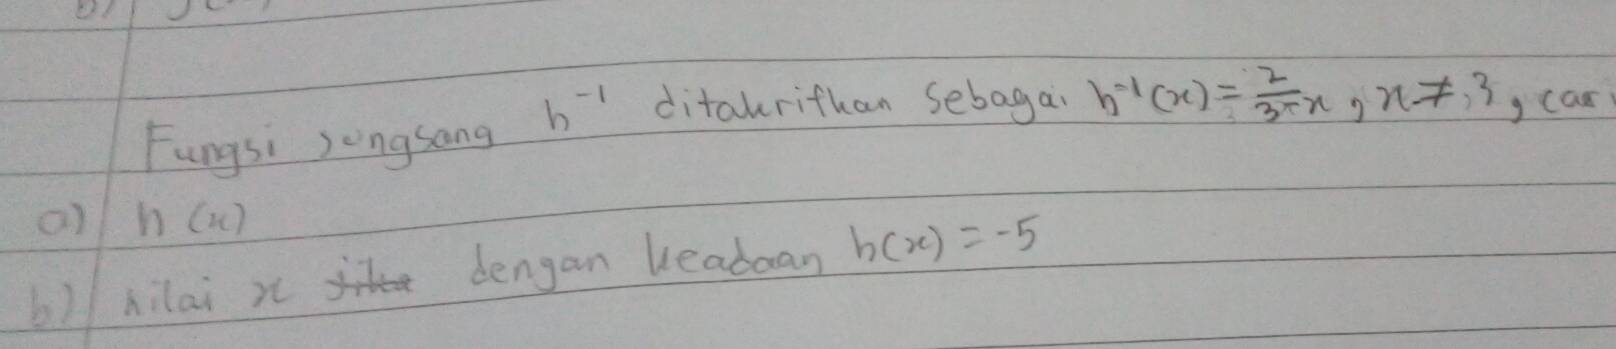 b)
Fungsi songsang h⁻¹ ditakrifkan sebagai h⁻¹(x) = 2/(3-x), x ≠ 3, cari
a) h(x)
b) nilai x ~~jika~~ dengan keadaan h(x) = -5